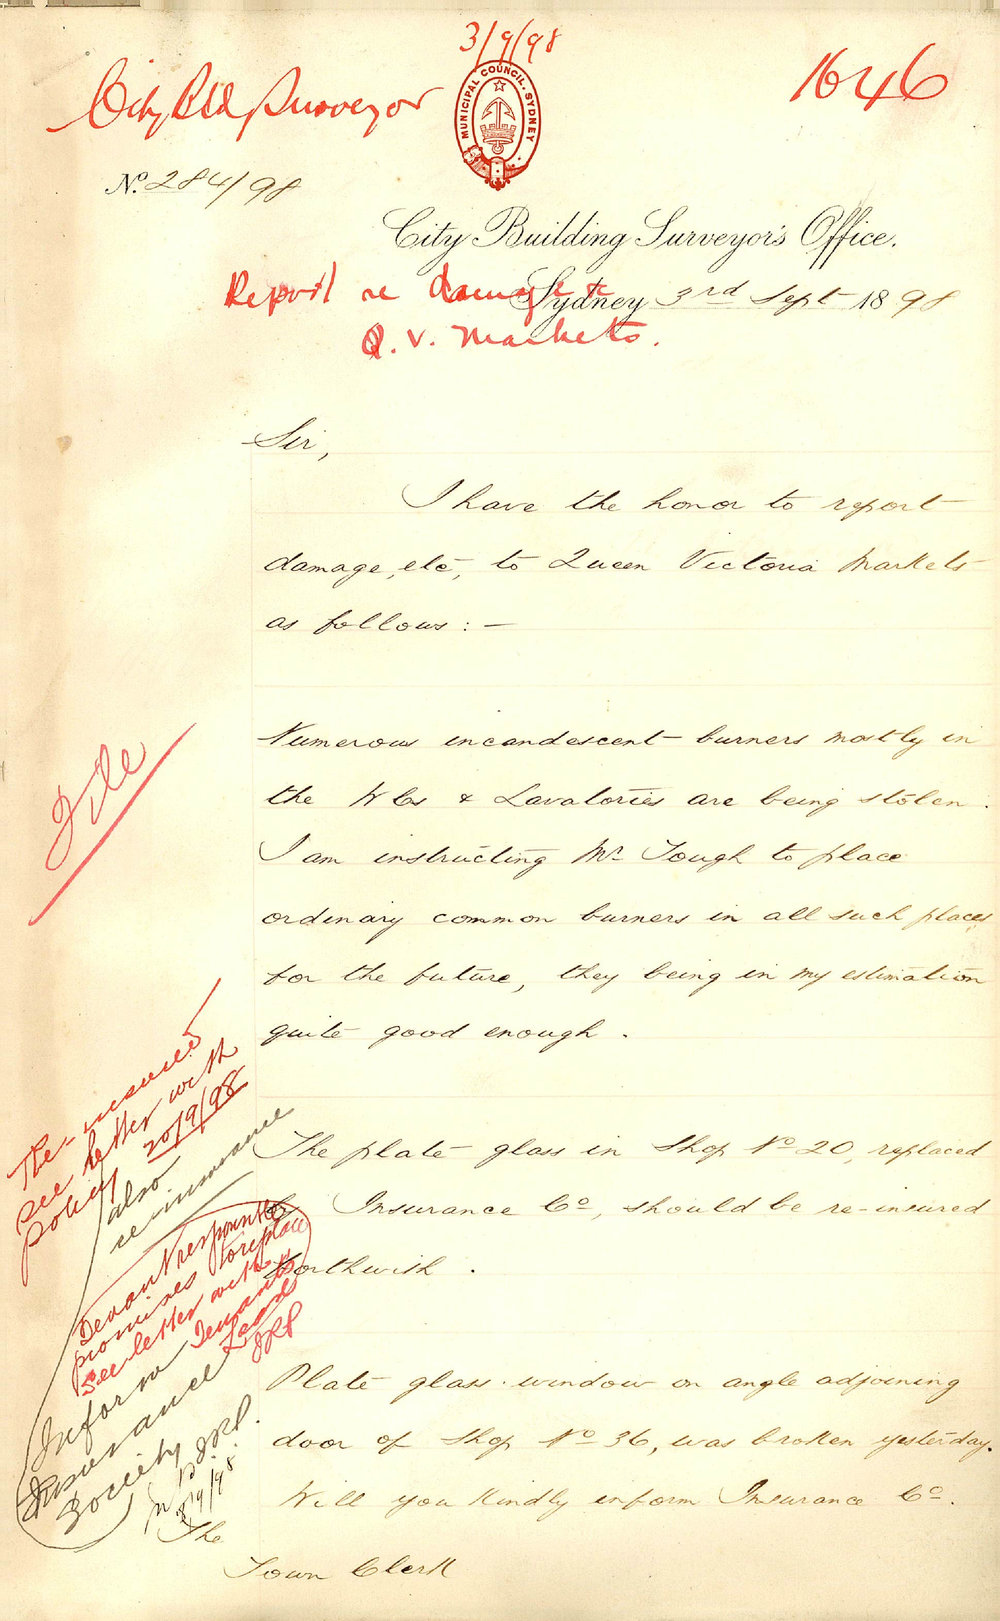 3/9/98
City Bld Surveyor
1646
MUNICIPAL COUNCIL. SYDNEY
No. 284/98
City Building Surveyor's Office.
Sydney 3rd Sept 1898
Report re damage to
Q. V. Markets.
Sir,
I have the honor to report
damage, etc, to Queen Victoria Markets
as follows: —
Numerous incandescent burners mostly in
the WCs & Lavatories are being stolen.
I am instructing Mr Tough to place
ordinary common burners in all such places
for the future, they being in my estimation
quite good enough.
File
The plate glass in Shop No 20, replaced
by Insurance Co, should be re-insured
forthwith.
Re-insured
see letter with
policy 20/9/98
also
reinsurance
Plate glass window on angle adjoining
door of Shop No 36, was broken yesterday.
Will you kindly inform Insurance Co.
Tenant responsible
promises to replace
See letter with
Tenants
Lease
JRP
Inform
Insurance
Society JRP.
8/9/98
The
Town Clerk